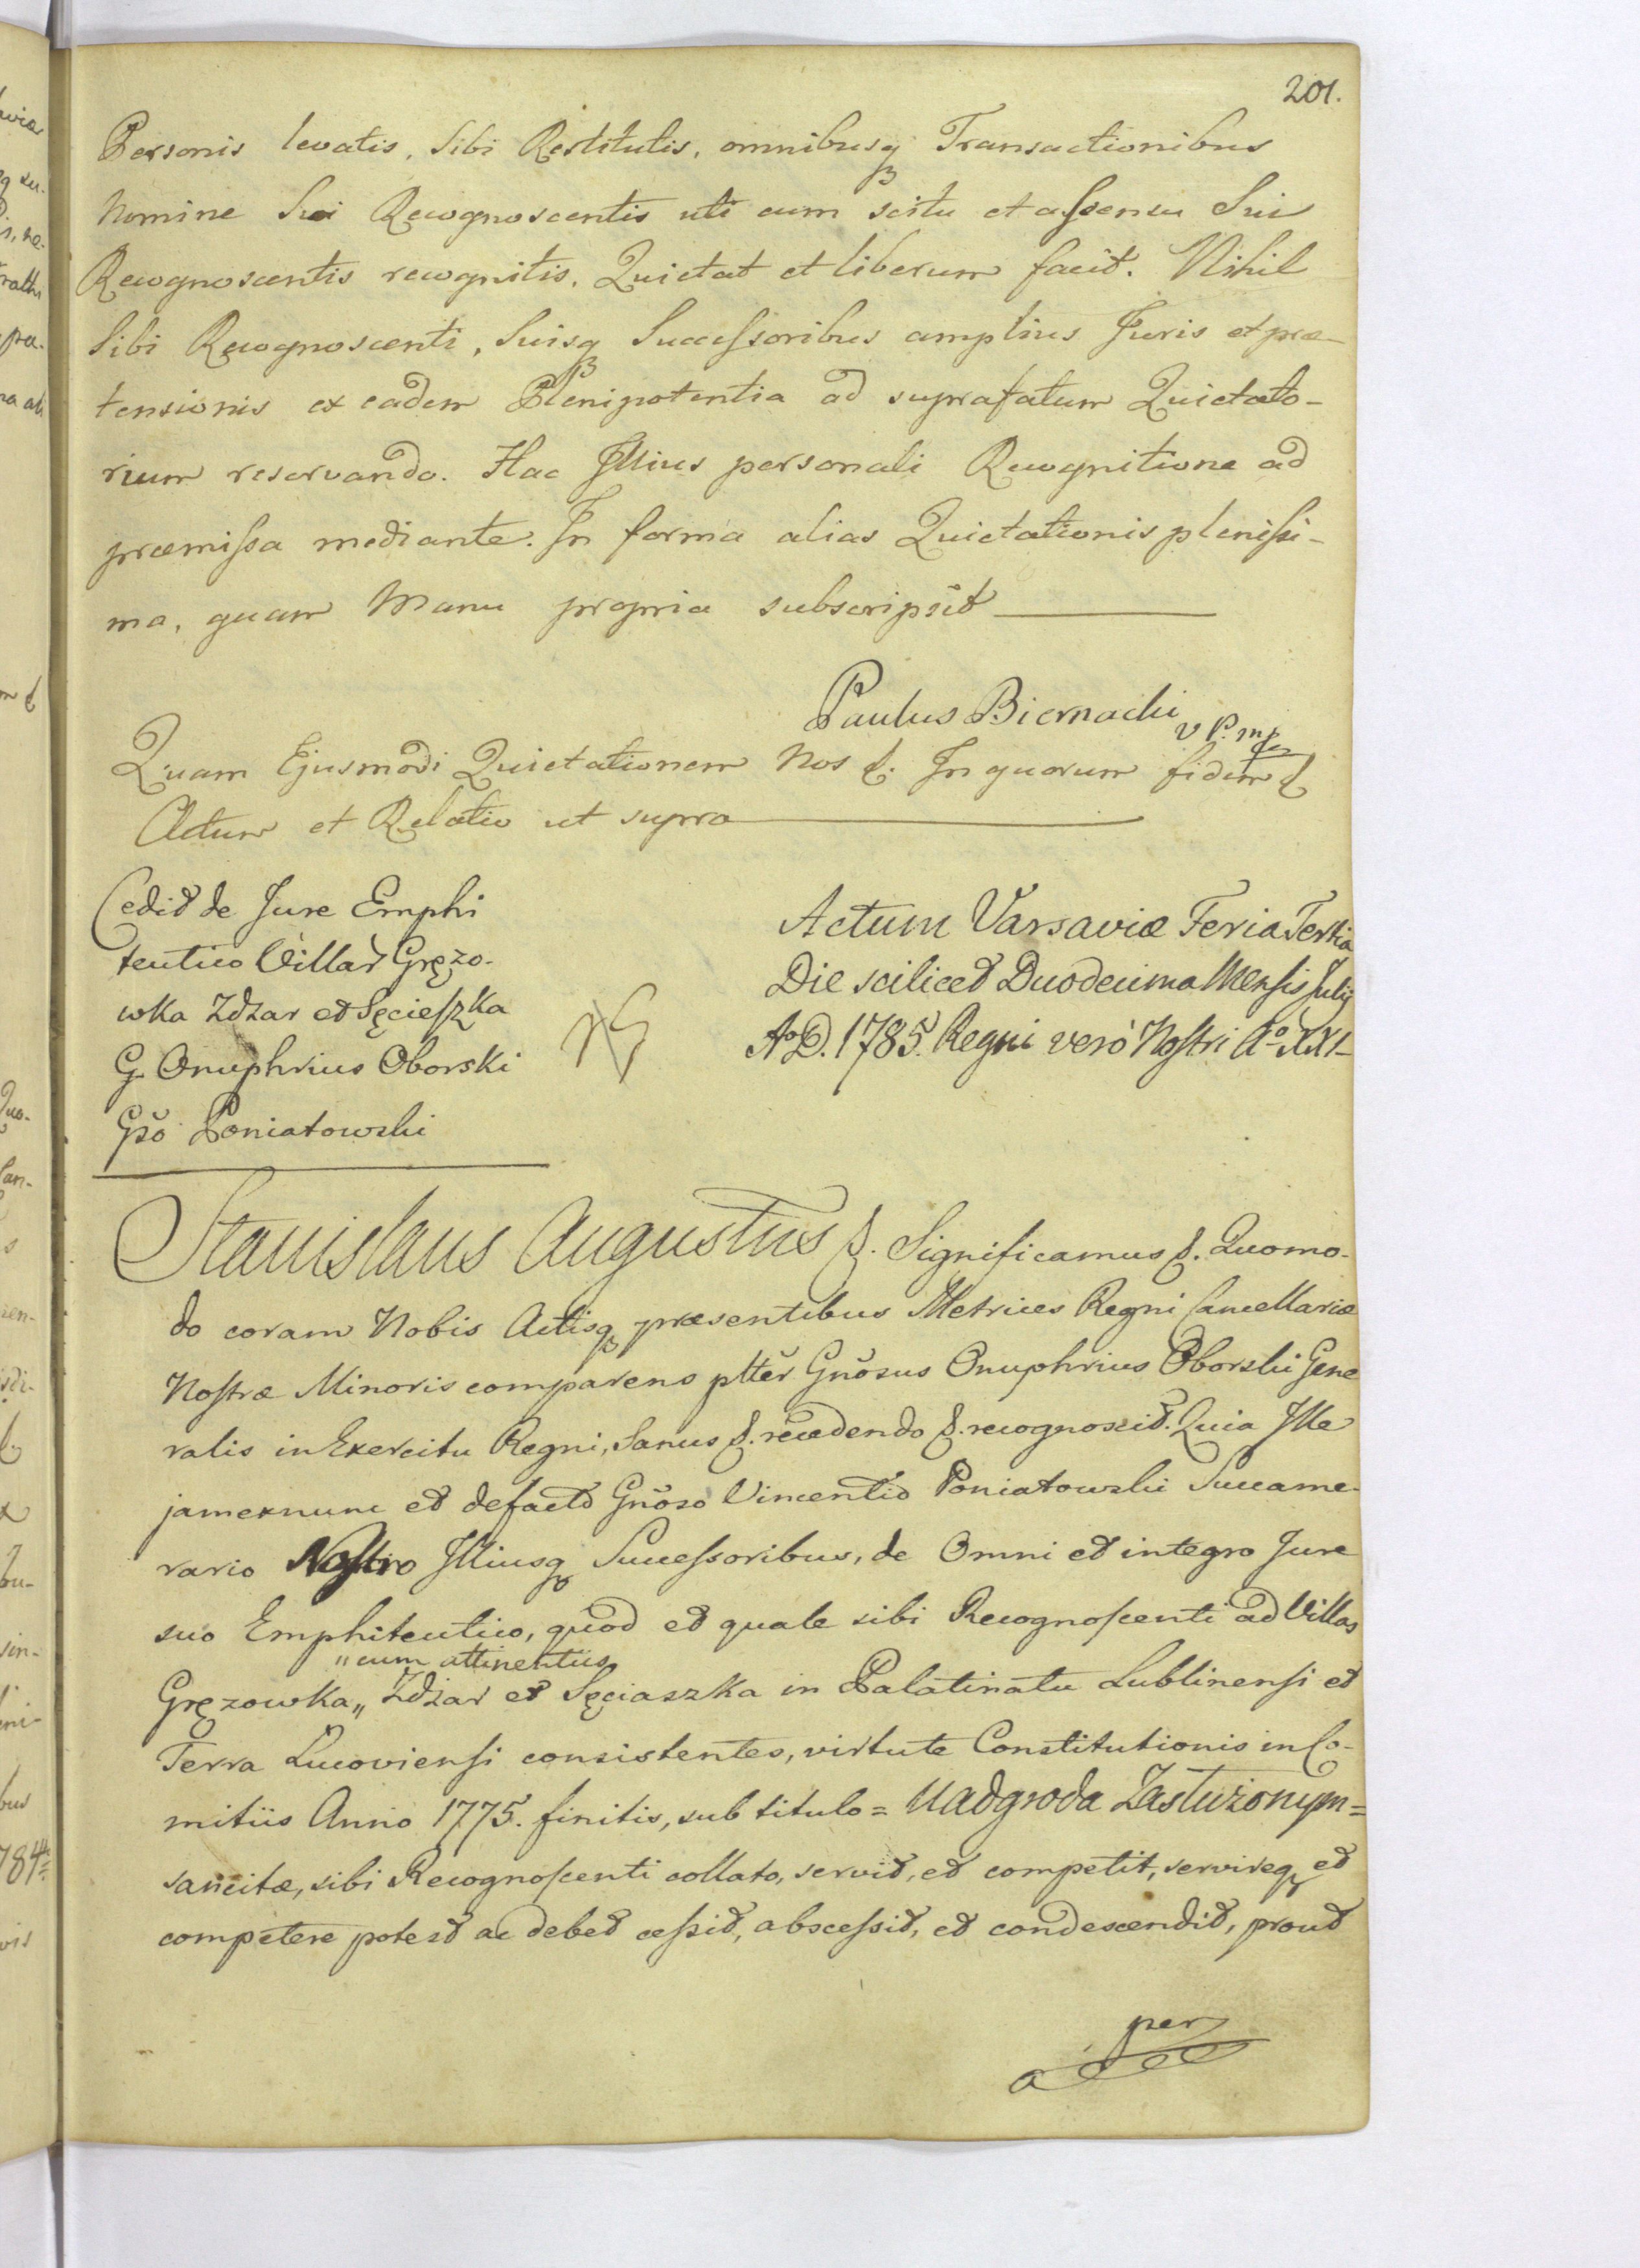 201.
Personis levatis, Sibi Restitutis, omnibusq Transactionibus
Nomine Sui Recognoscentis uti cum scitu et assensu Sui
Recognoscentis recognitis, Quietat et liberum facit. Nihil
Sibi Recognoscenti, Suisq Successoribus amplius Juris et præ-
tensionis ex eadem Plenipotentia ad suprafatum Quietato-
rium reservando. Hac Illius personali Recognitione ad
præmissa mediante. In forma alias Quietationis plenissi-
ma, quam Manu propria subscripsit
Paulus Biernacki
V P. mp
Quam Ejusmodi Quietationem Nos &. In quorum fidem &
Actum et Relatio ut supra
Cedit de Jure Emphi
teutico Villar Gręzo-
wka Zdżar et Sęcieszka
G. Onuphrius Oborski
Gso Poniatowski
Actum Varsaviæ Feria Tertia
Die scilicet Duodecima Mensis Julij
Ao D. 1785. Regni verò Nostri Ao XXI
Stanislaus Augustus &. Significamus &. Quomo-
do coram Nobis Actisq præsentibus Metrices Regni Cancellariæ
Nostræ Minoris comparens pltter Gnosus Onuphrius Oborski Gene
ralis in Exercitu Regni, Sanus &. recedendo &. recognoscit. Quia Ille
jamexnunc et defacto Gnoso Vincentio Poniatowski Succame-
rario Nostro Illiusq Successoribus, de Omni et integro Jure
suo Emphiteutico, quod et quale sibi Recognoscenti ad Villas
„cum attinentiis
Gręzowka„ Zdżar et Sęciaszka in Palatinatu Lublinensi et
Terra Lucoviensi consistentes, virtute Constitutionis in Co-
mitiis Anno 1775. finitis, sub titulo = Nadgroda Zasłużonym =
sancitæ, sibi Recognoscenti collato, servit, et competit, servireq et
competere potest ac debet cessit, abscessit, et condescendit, prout
per